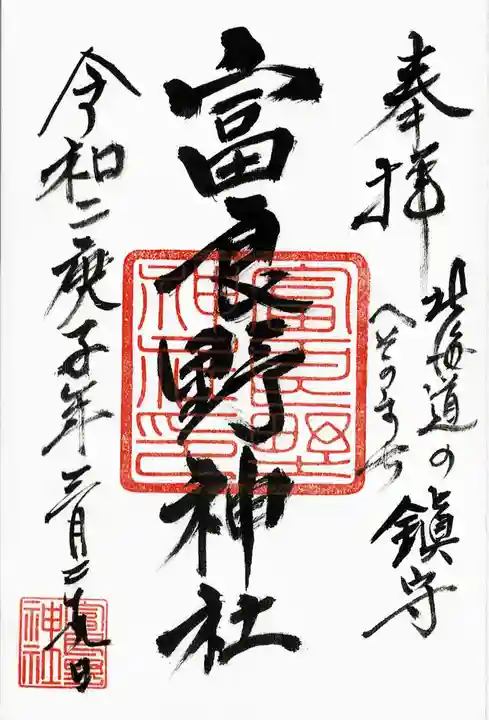 奉拝
北海道の鎮守
へそのまち
富良野神社
富良野神社印
令和二庚子年三月二十九日
富良野神社